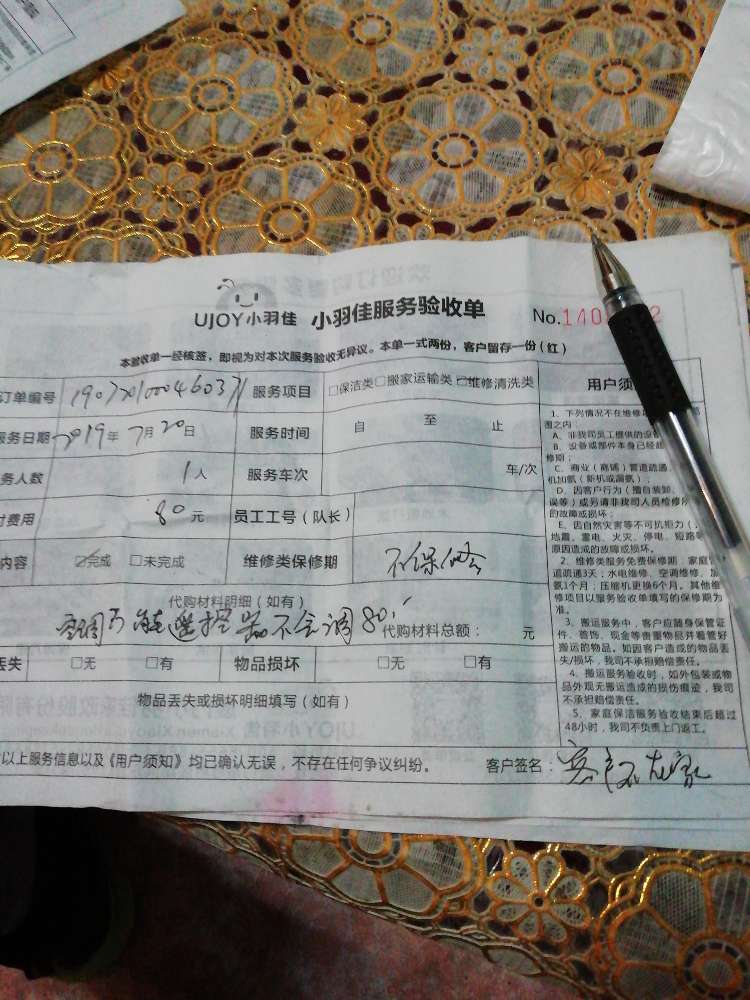 UJOY小羽佳 小羽佳服务验收单 No.140
本验收单一经核签，即视为对本次服务验收无异议。本单一式两份，客户留存一份（红）
订单编号 服务项目 □保洁类□搬家运输类□维修清洗类 用户须
服务日期 2019年7月20日 服务时间 自 至 止
务人数 1人 服务车次 车/次
付费用 80元 员工工号（队长）
内容 ☑完成 □未完成 维修类保修期 不保修
代购材料明细（如有）
遥控器不会调80 代购材料总额： 元
丢失 □无 □有 物品损坏 □无 □有
物品丢失或损坏明细填写（如有）
以上服务信息以及《用户须知》均已确认无误，不存在任何争议纠纷。 客户签名：客户不在家
1、下列情况不在维修
围之内：
A、非我司员工提供的设
B、设备或部件本身已经超
修期；
C、商业（商铺）管道疏通
机加氨（新机或漏氨）；
D、因客户行为（擅自装卸、
误等）或另请非我司人员检修
的故障或损坏；
E、因自然灾害等不可抗拒力（
地震、雷电、火灾、停电、短路
原因造成的故障或损坏。
2、维修类服务免费保修期：家庭
道疏通3天；水电维修、空调维修、加
氨1个月；压缩机更换6个月。其他维
修项目以服务验收单填写的保修期为
准。
3、搬运服务中，客户应随身保管证
件、首饰、现金等贵重物品并看管好
搬运的物品。如因客户造成的物品丢
失/损坏，我司不承担赔偿责任。
4、搬运服务验收时，如外包装或物
品外观无搬运造成的损伤痕迹，我司
不承担赔偿责任。
5、家庭保洁服务验收结束后超过
48小时，我司不负责上门返工。